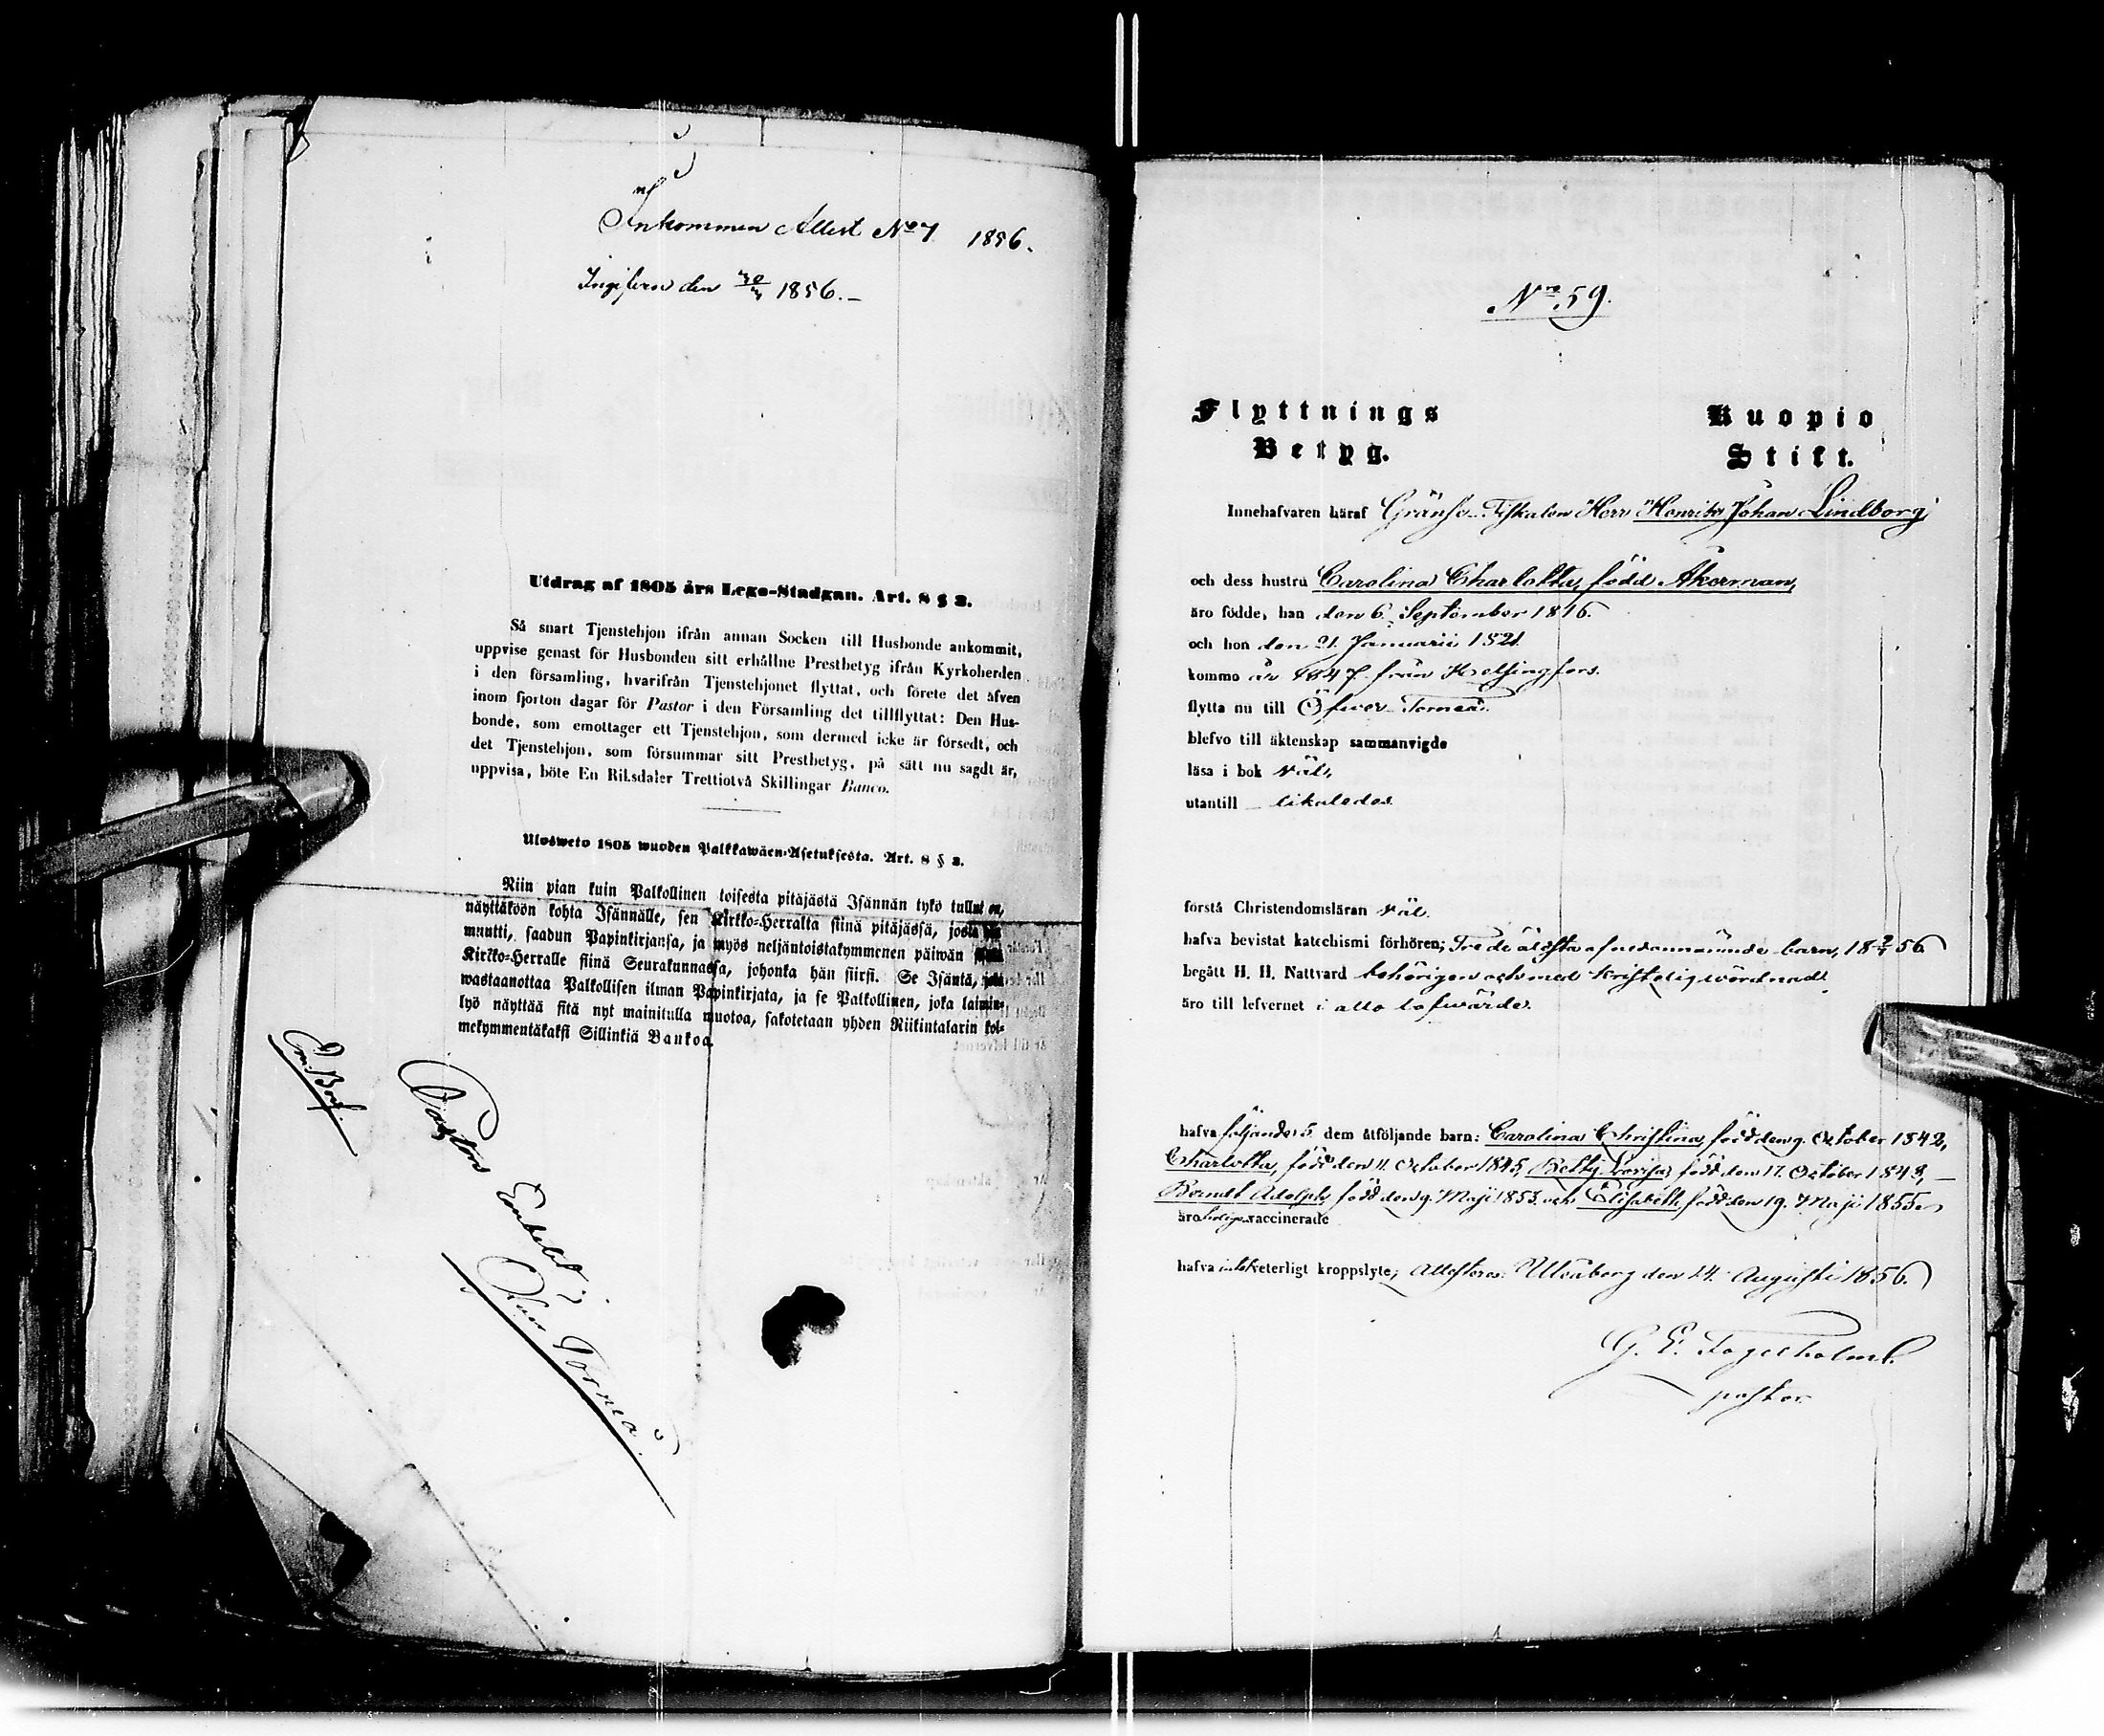 Inkommen Attest No 7 1856.
Ingifven den 30/3 1856.
Utdrag af 1805 års Lego-Stadgan. Art. 8 § 3.
Så snart Tjenstehjon ifrån annan Socken till Husbonde ankommit,
uppvise genast för Husbonden sitt erhållne Prestbetyg ifrån Kyrkoherden
i den församling, hvarifrån Tjenstehjonet flyttat, och förete det äfven
inom fjorton dagar för Pastor i den Församling det tillflyttat: Den Hus-
bonde, som emottager ett Tjenstehjon, som dermed icke är försedt, och
det Tjenstehjon, som försummar sitt Prestbetyg, på sätt nu sagdt är,
uppvisa, böte En Riksdaler Trettiotvå Skillingar Banco.
Ulosweto 1805 wuoden Palkkawäen-Asetuksesta. Art. 8 § 3.
Niin pian kuin Palkollinen toisesta pitäjästä Isännän tykö tullut on,
näyttäköön kohta Isännälle, sen Kirkko-Herralta siinä pitäjässä, josta
muutti, saadun Papinkirjansa, ja myös neljäntoistakymmenen päiwän
Kirkko-Herralle siinä Seurakunnassa, johonka hän siirsi. Se Isäntä, joka
wastaanottaa Palkollisen ilman Papinkirjata, ja se Palkollinen, joka laimin-
lyö näyttää sitä nyt mainitulla muotoa, sakotetaan yhden Riikintalarin kol-
mekymmentäkaksi Sillinkiä Bankoa.
Pastors Embetet
i
Öfver Torneå.
No 59.
Flyttnings Kuopio
Betyg. Stift.
Innehafvaren häraf Gränse-Fiskalen Herr Henrik Johan Lindborg
och dess hustru Carolina Charlotta, född Åkerman,
äro födde, han den 6. September 1816.
och hon den 21. Januarii 1821.
kommo år 1847 från Helsingfors.
flytta nu till Öfwer Torneå.
blefvo till äktenskap sammanvigde
läsa i bok väl,
utantill likaledes.
förstå Christendomsläran väl.
hafva bevistat katechismi förhören; Tre de äldsta af nedannämnde barn, 18 56
begått H. H. Nattvard behörigen och med kristelig wördnad.
äro till lefvernet i allo lofwärde.
hafva följande 5 dem åtföljande barn: Carolina Christina, född den 9. October 1842,
Charlotta, född den 11. October 1845, Betty Lovisa, född den 17. October 1848,
Berndt Adolph, född den 9. Maji 1853. och Elisabeth, född den 19. Maji 1855.
äro vaccinerade
hafva intet veterligt kroppslyte; Attesteras. Uleåborg den 14. Augusti 1856.
G. E. Fogelholm.
pastor.